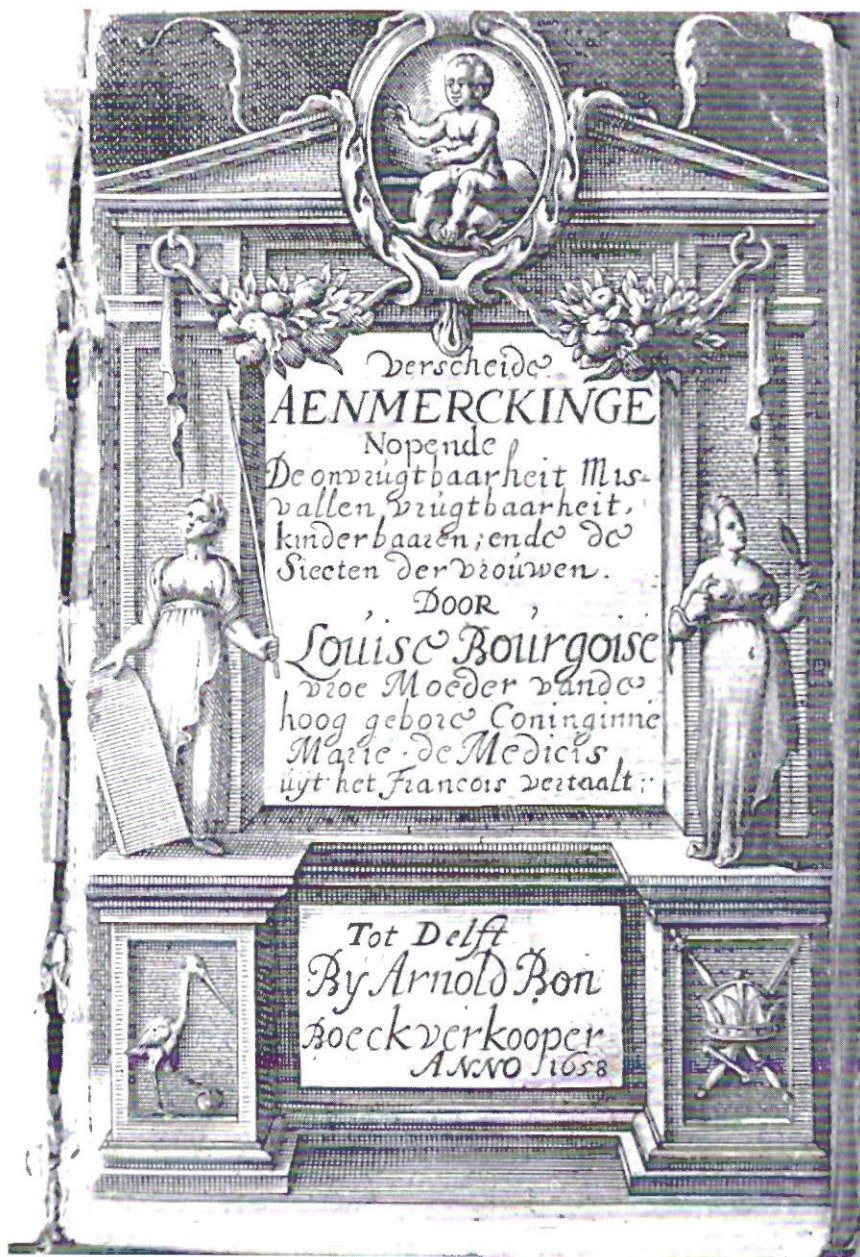 verscheide
AENMERCKINGE
Nopende
De onvrúgtbaarheit Mis-
vallen, vrúgtbaarheit,
kinderbaaren; ende de
Siecten der vroúwen.
DOOR
Loúise Boúrgoise
vroe Moeder vande
hoog gebore Coninginne
Marie de Medicis
úÿt het Francois vertaalt:
Tot Delft
By Arnold Bon
Boeckverkooper
ANNO 1658